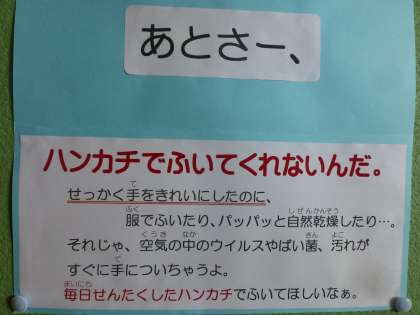 あとさー、
ハンカチでふいてくれないんだ。
せっかく手をきれいにしたのに、
服でふいたり、パッパッと自然乾燥したり…。
それじゃ、空気の中のウイルスやばい菌、汚れが
すぐに手についちゃうよ。
毎日せんたくしたハンカチでふいてほしいなぁ。